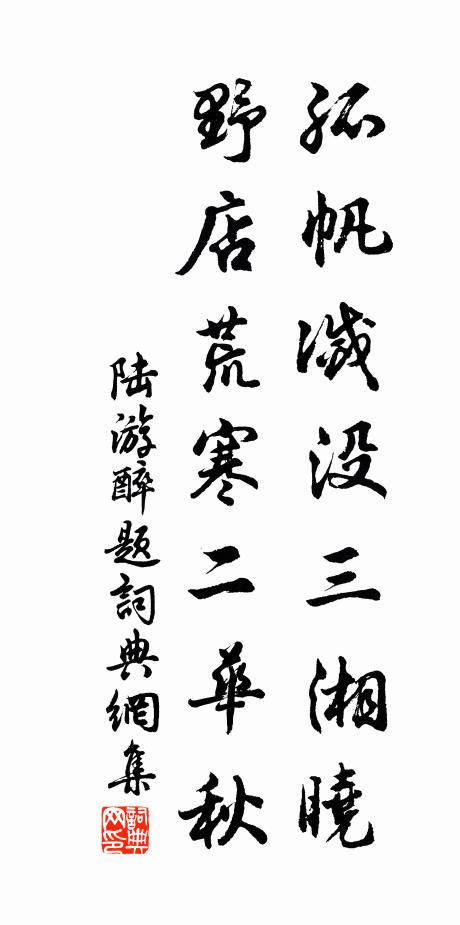 孤帆滅没三湘曉
野店荒寒二華秋
陆游醉題詞典網集
詞典網印